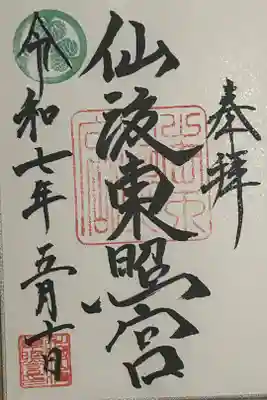 奉拝
仙波東照宮
令和七年五月十日